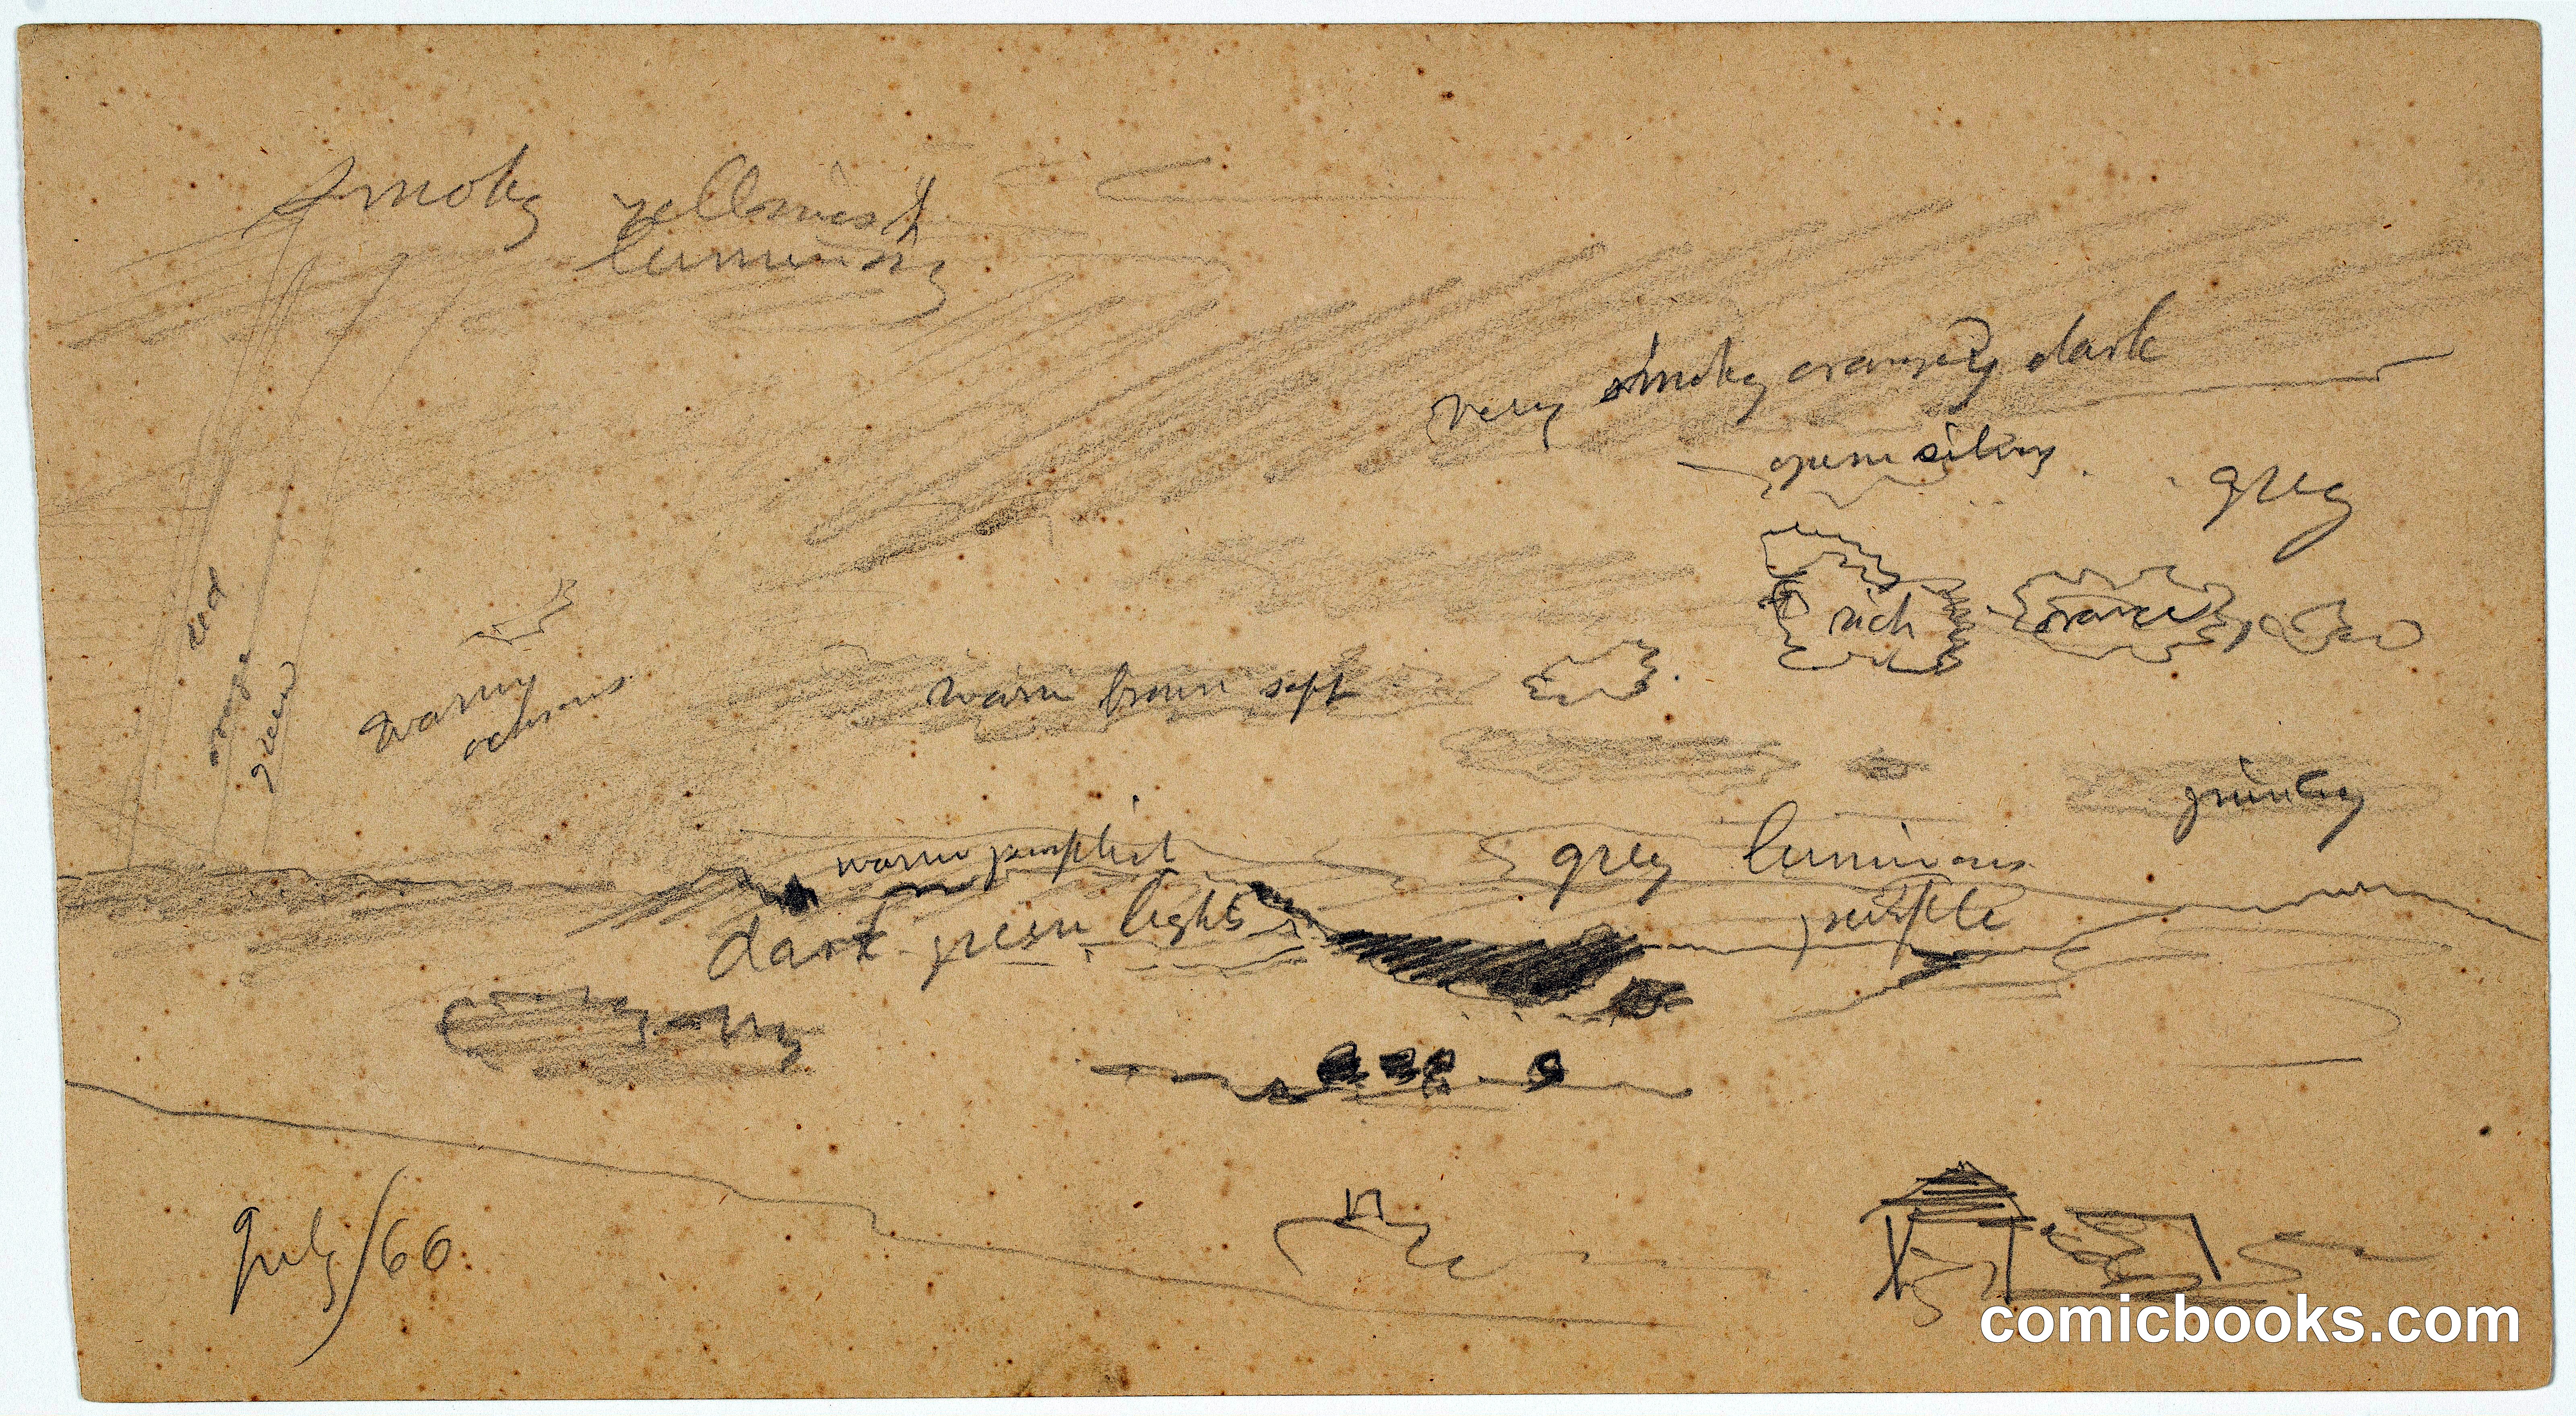 smoky yellowish
luminous
very smoky orangey dark
grey
red
orange
green
rich
orange
warm
ochrous
warm brown soft
warm purplish
grey luminous
purple
dark green lights
July/66.
comicbooks.com